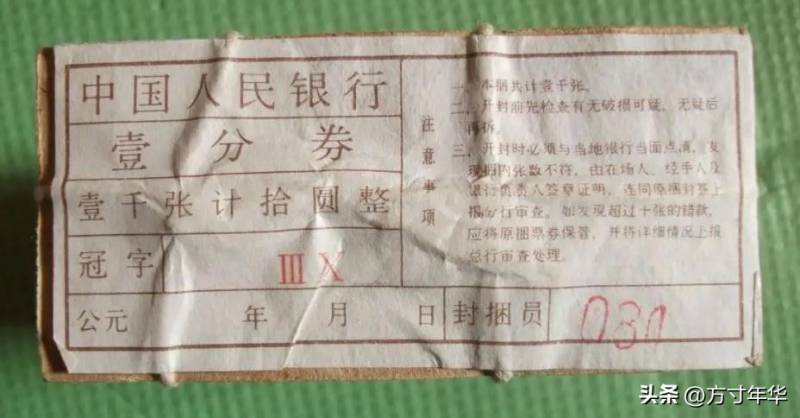 中国人民银行
壹分券
壹千张计拾圆整
冠字 III X
公元 年 月 日 封捆员
注意事项
一、本捆共计壹千张。
二、开封前先检查有无破损可疑，无疑后
再拆。
三、开封时必须与当地银行当面点清，发
现捆内张数不符，由在场人、经手人及
银行负责人签章证明，连同原捆封签上
报分行审查。如发现超过十张的错款，
应将原捆票券保管，并将详细情况上报
总行审查处理。
头条 @方寸年华